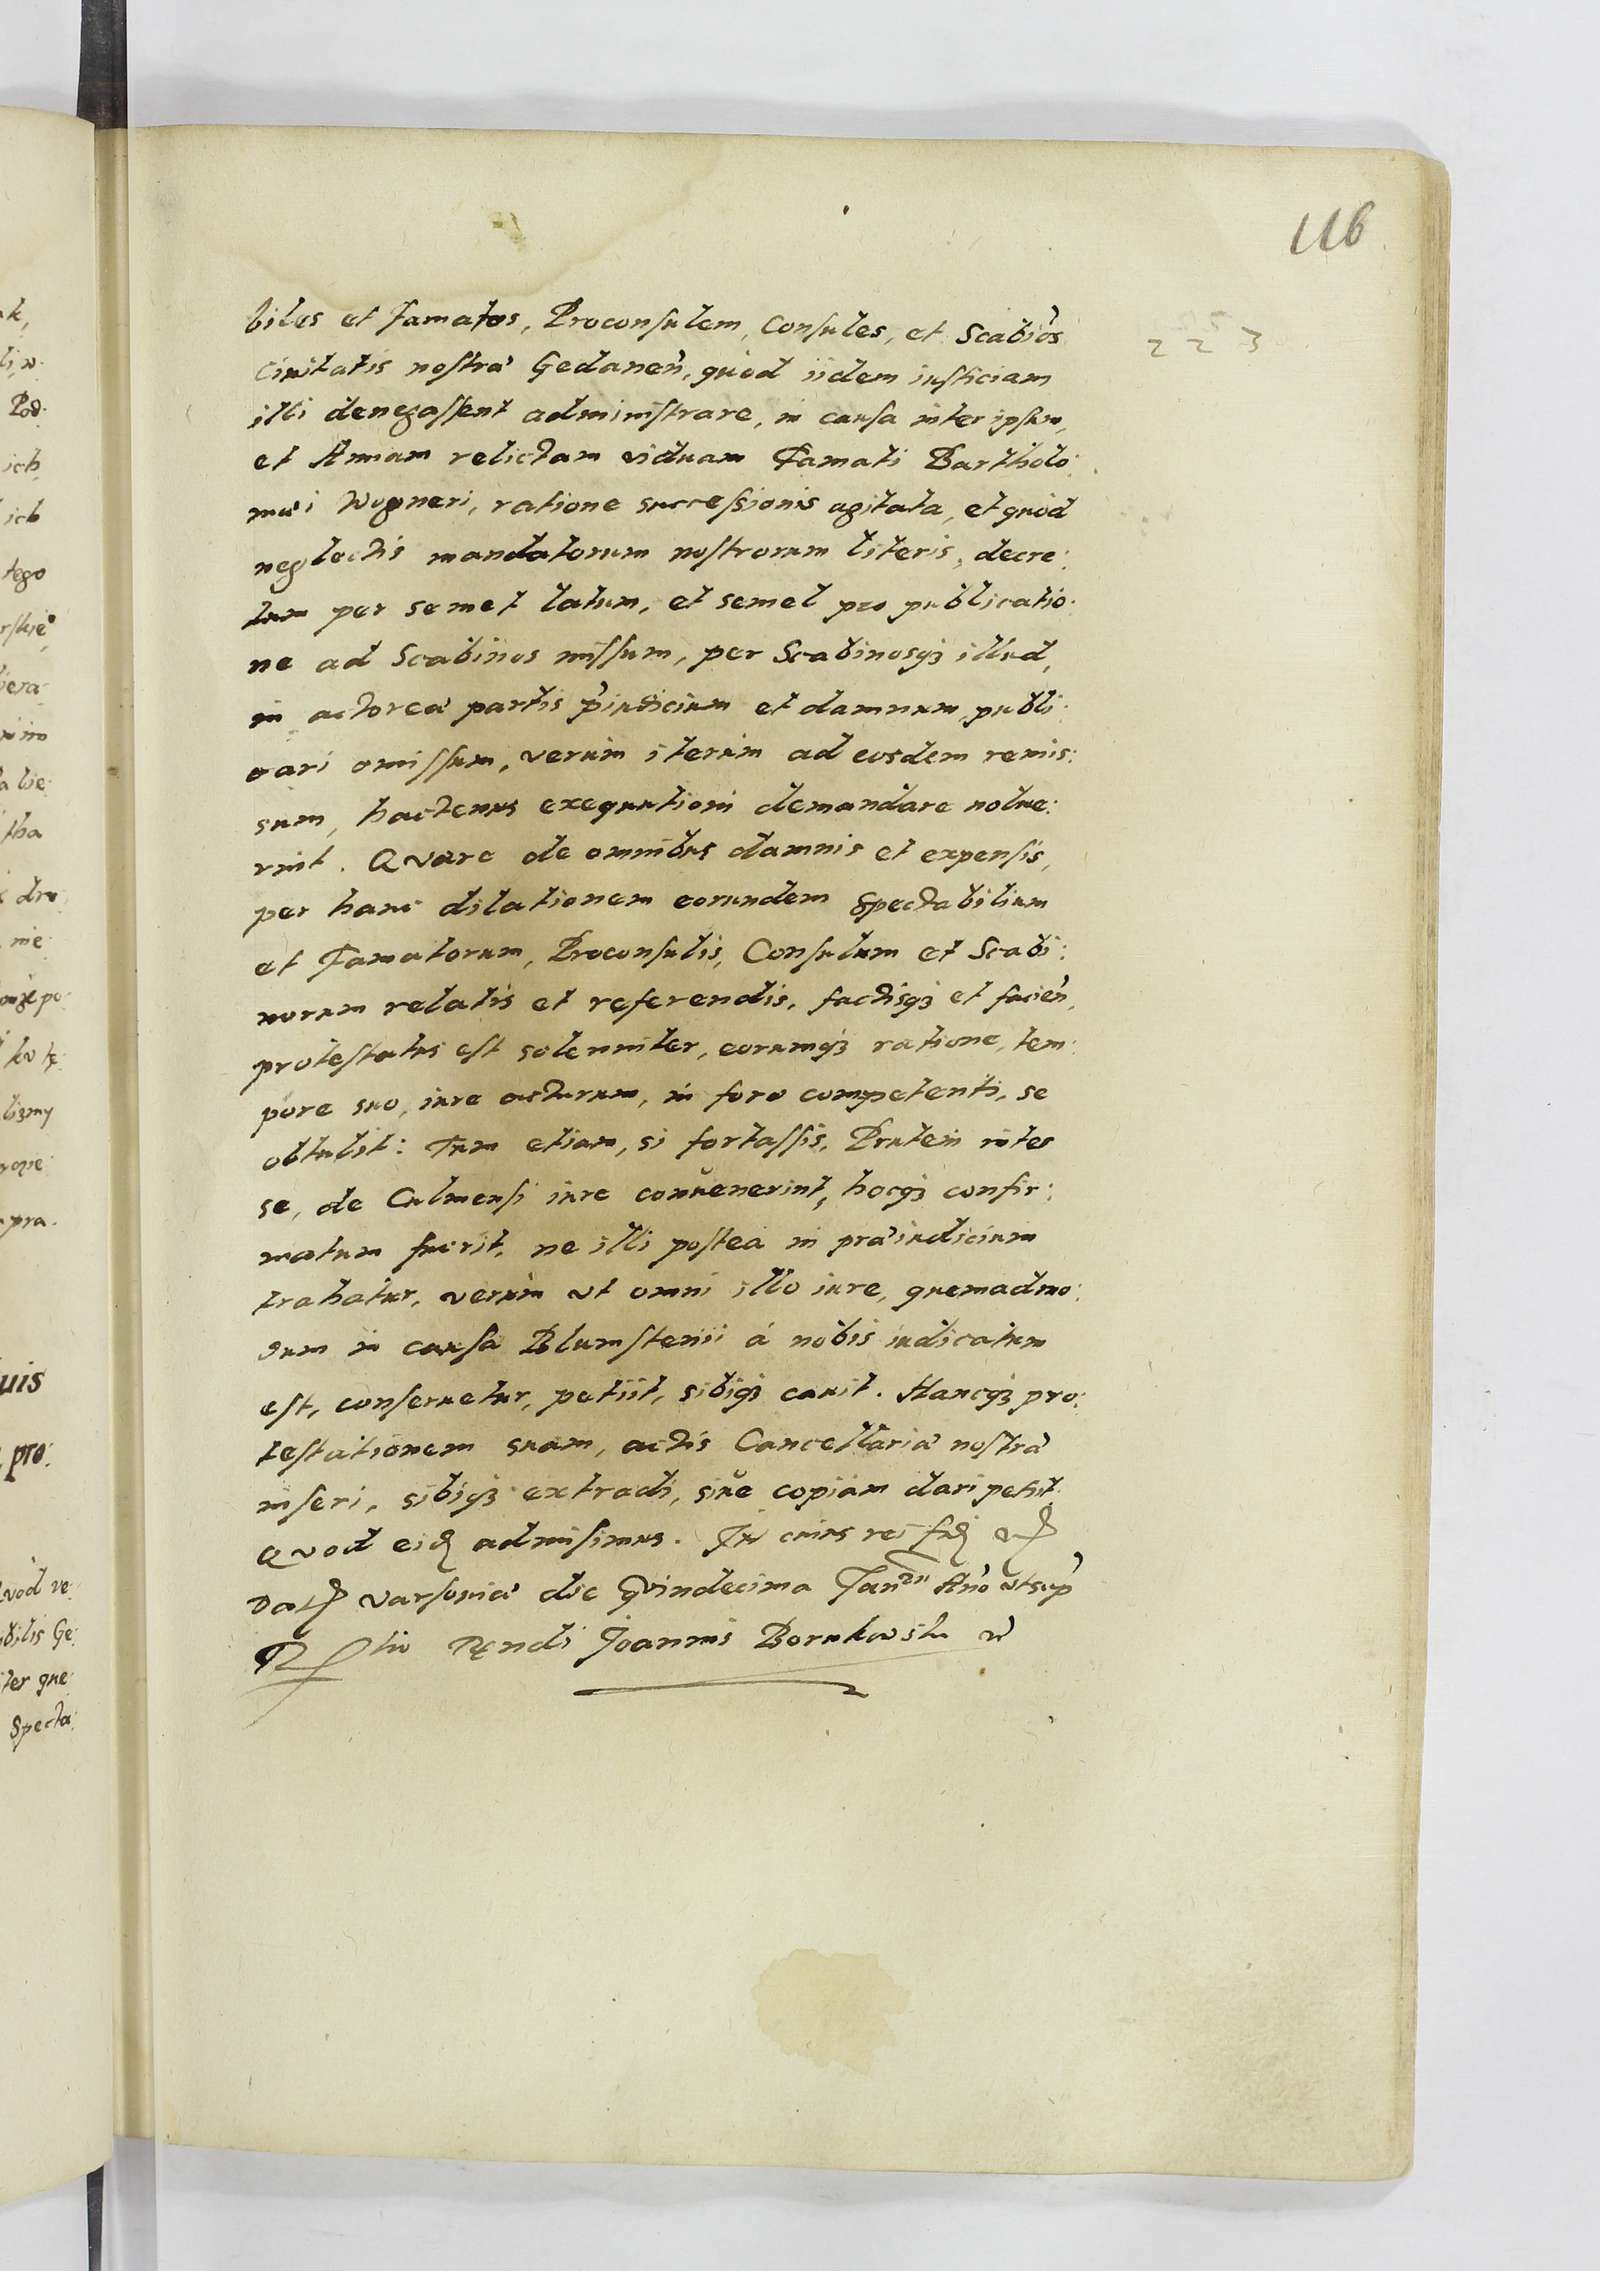 116
2 2 3
biles et Famatos, Proconsulem, Consules, et Scabiõs
Ciuitatis nostræ Gedaneñ, quòd iidem iusticiam
illi denegassent administrare, in causa inter ipsum,
et Annam relictam viduam Famati Bartholo:
mæi Wogneri, ratione successionis agitata, et quòd
neglectis mandatorum nostrorum literis, decre:
tum per semet latum, et semel pro publicatio:
ne ad Scabinos missum, per Scabinosq3 illud,
in actoreæ partis p̃iudicium et damnum publi:
cari omissum, verùm iterùm ad eosdem remis:
sum, hactenus exequutioni demandare nolue:
rint. Qvare de omnibus damnis et expensis,
per hanc dilationem eorundem Spectabilium
et Famatorum, Proconsulis, Consulum et Scabi:
norum relatis et referendis, factisq3 et facieñ,
protestatus est solenniter, eorumq3 ratione, tem:
pore suo, iure acturum, in foro competenti, se
obtulit: Tum etiam, si fortassis, Pruteni inter
se, de Culmensi iure conuenerint, hocq3 confir:
matum fuerit, ne illi posteà in præiudicium
trahatur, verùm vt omni illo iure, quemadmo:
dum in causa Blumstenii à nobis iudicatum
est, conseruetur, petiit, sibiq3 cauit. Hancq3 pro:
testationem suam, actis Cancellariæ nostræ
inseri, sibiq3 extradi, siue copiam dari petiit.
Qvod eid admisimus. In cuius rei fid
Dat Varsouiæ die Qvindecima Ianrii Año vtsup̃
R tio Rendi Joannis Borukowski
uis
pro:
vod ve:
bilis Ge:
ter que:
Specta: